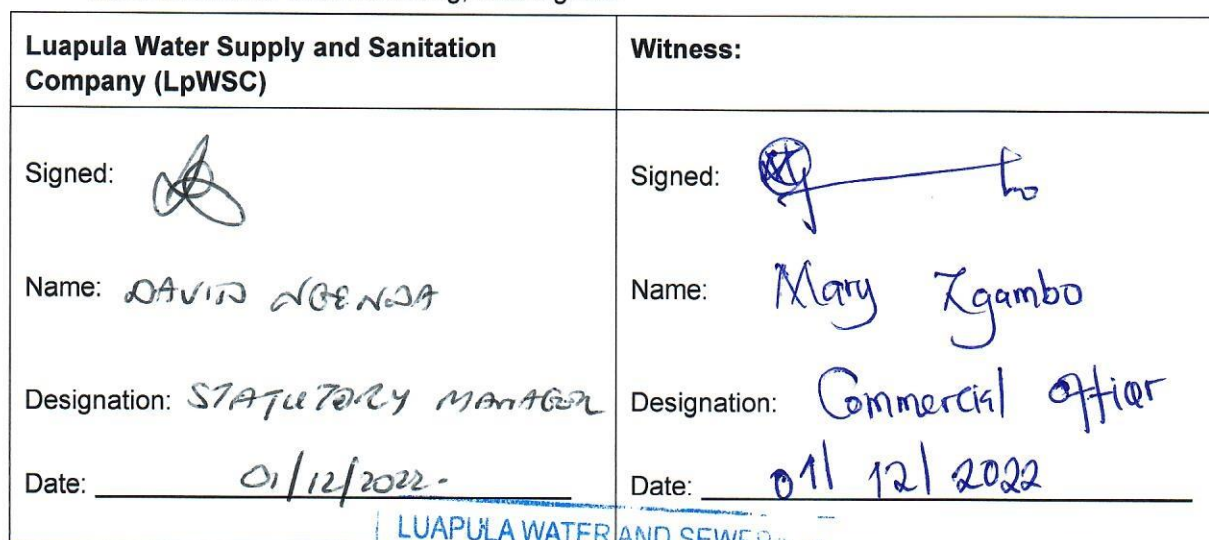 Luapula Water Supply and Sanitation
Company (LpWSC)
Witness:
Signed:
Signed:
Name: DAVID NGENDA
Name: Mary Zgambo
Designation: STATUTORY MANAGER
Designation: Commercial Officer
Date: 01/12/2022.
Date: 01/12/2022
LUAPULA WATER AND SEWER